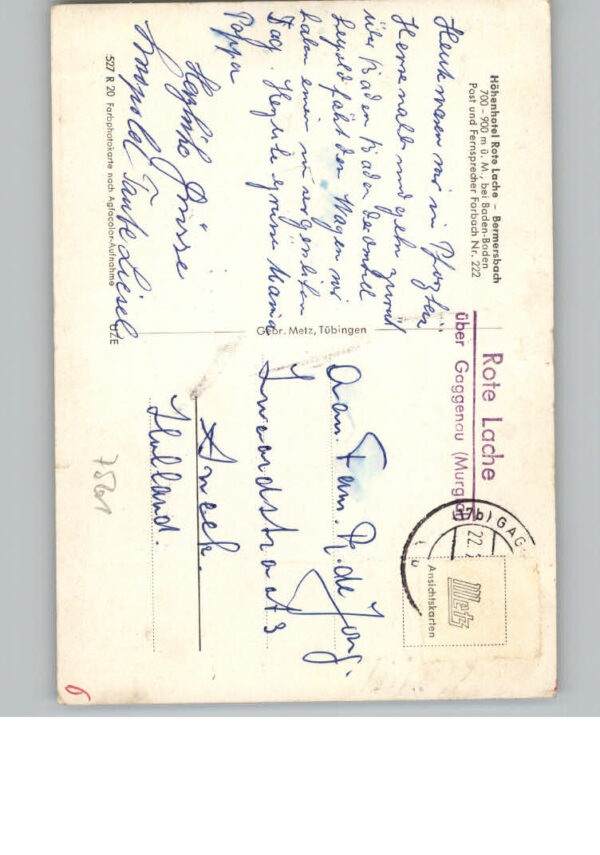 Höhenhotel Rote Lache – Bermersbach
700–900 m ü. M., bei Baden-Baden
Post und Fernsprecher Forbach Nr. 222
Heute waren wir in Pforzheim
Herrenalb und gehn zurück
über Baden Baden
Leopold fährt den Wagen wir
haben einen
Tag. Herzliche Grüsse Maria
Pappa
Herzliche Grüsse
Leopold Tante Liesel
527 R 20 Farbphotokarte nach Agfacolor-Aufnahme
ÜZE
Gebr. Metz, Tübingen
Rote Lache
über Gaggenau (Murgtal)
(17b) GAG
22.
Metz
Ansichtskarten
Aan. Fam. R. de Jong.
straat 3
Sneek.
Holland.
6